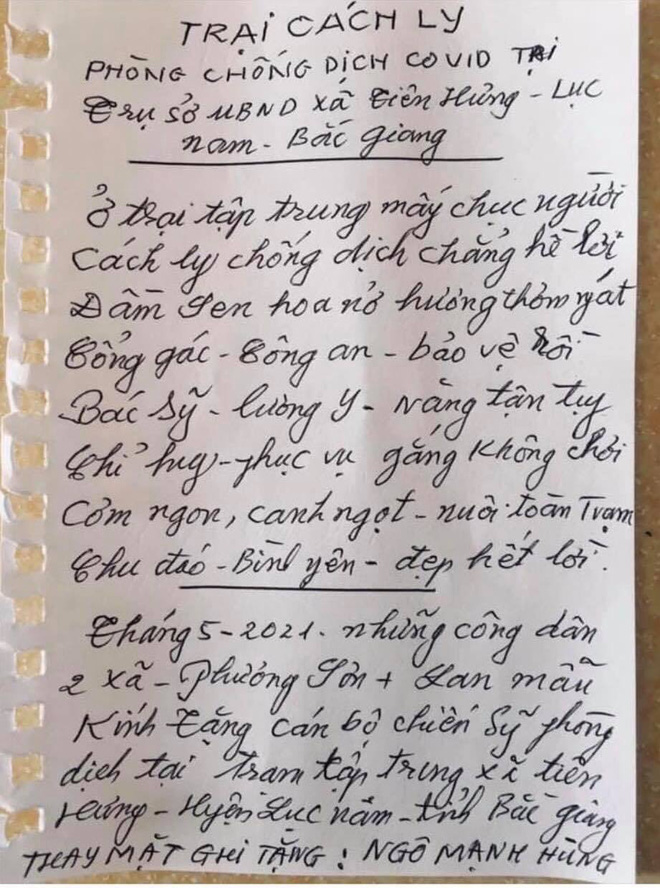 TRẠI CÁCH LY
PHÒNG CHỐNG DỊCH COVID TẠI
Trụ sở UBND xã Tiên Hưng - LỤC
nam - Bắc Giang
Ở trại tập trung mấy chục người
Cách ly chống dịch chẳng hề lơi
Đầm Sen hoa nở hương thơm ngát
Cổng gác - Công an - bảo vệ rồi
Bác sỹ - lương y - Nàng tận tụy
Chỉ huy - phục vụ gắng không chơi
Cơm ngon, canh ngọt - nuôi toàn Trạm
Chu đáo - Bình yên - đẹp hết lời.
Tháng 5-2021. những công dân
2 xã - Phương Sơn + Lan mẫu
Kính tặng cán bộ chiến sỹ phòng
dịch tại trạm tập trung xã tiên
Hưng - Huyện Lục nam - tỉnh Bắc giang
THAY MẶT GHI TẶNG: NGÔ MẠNH HÙNG